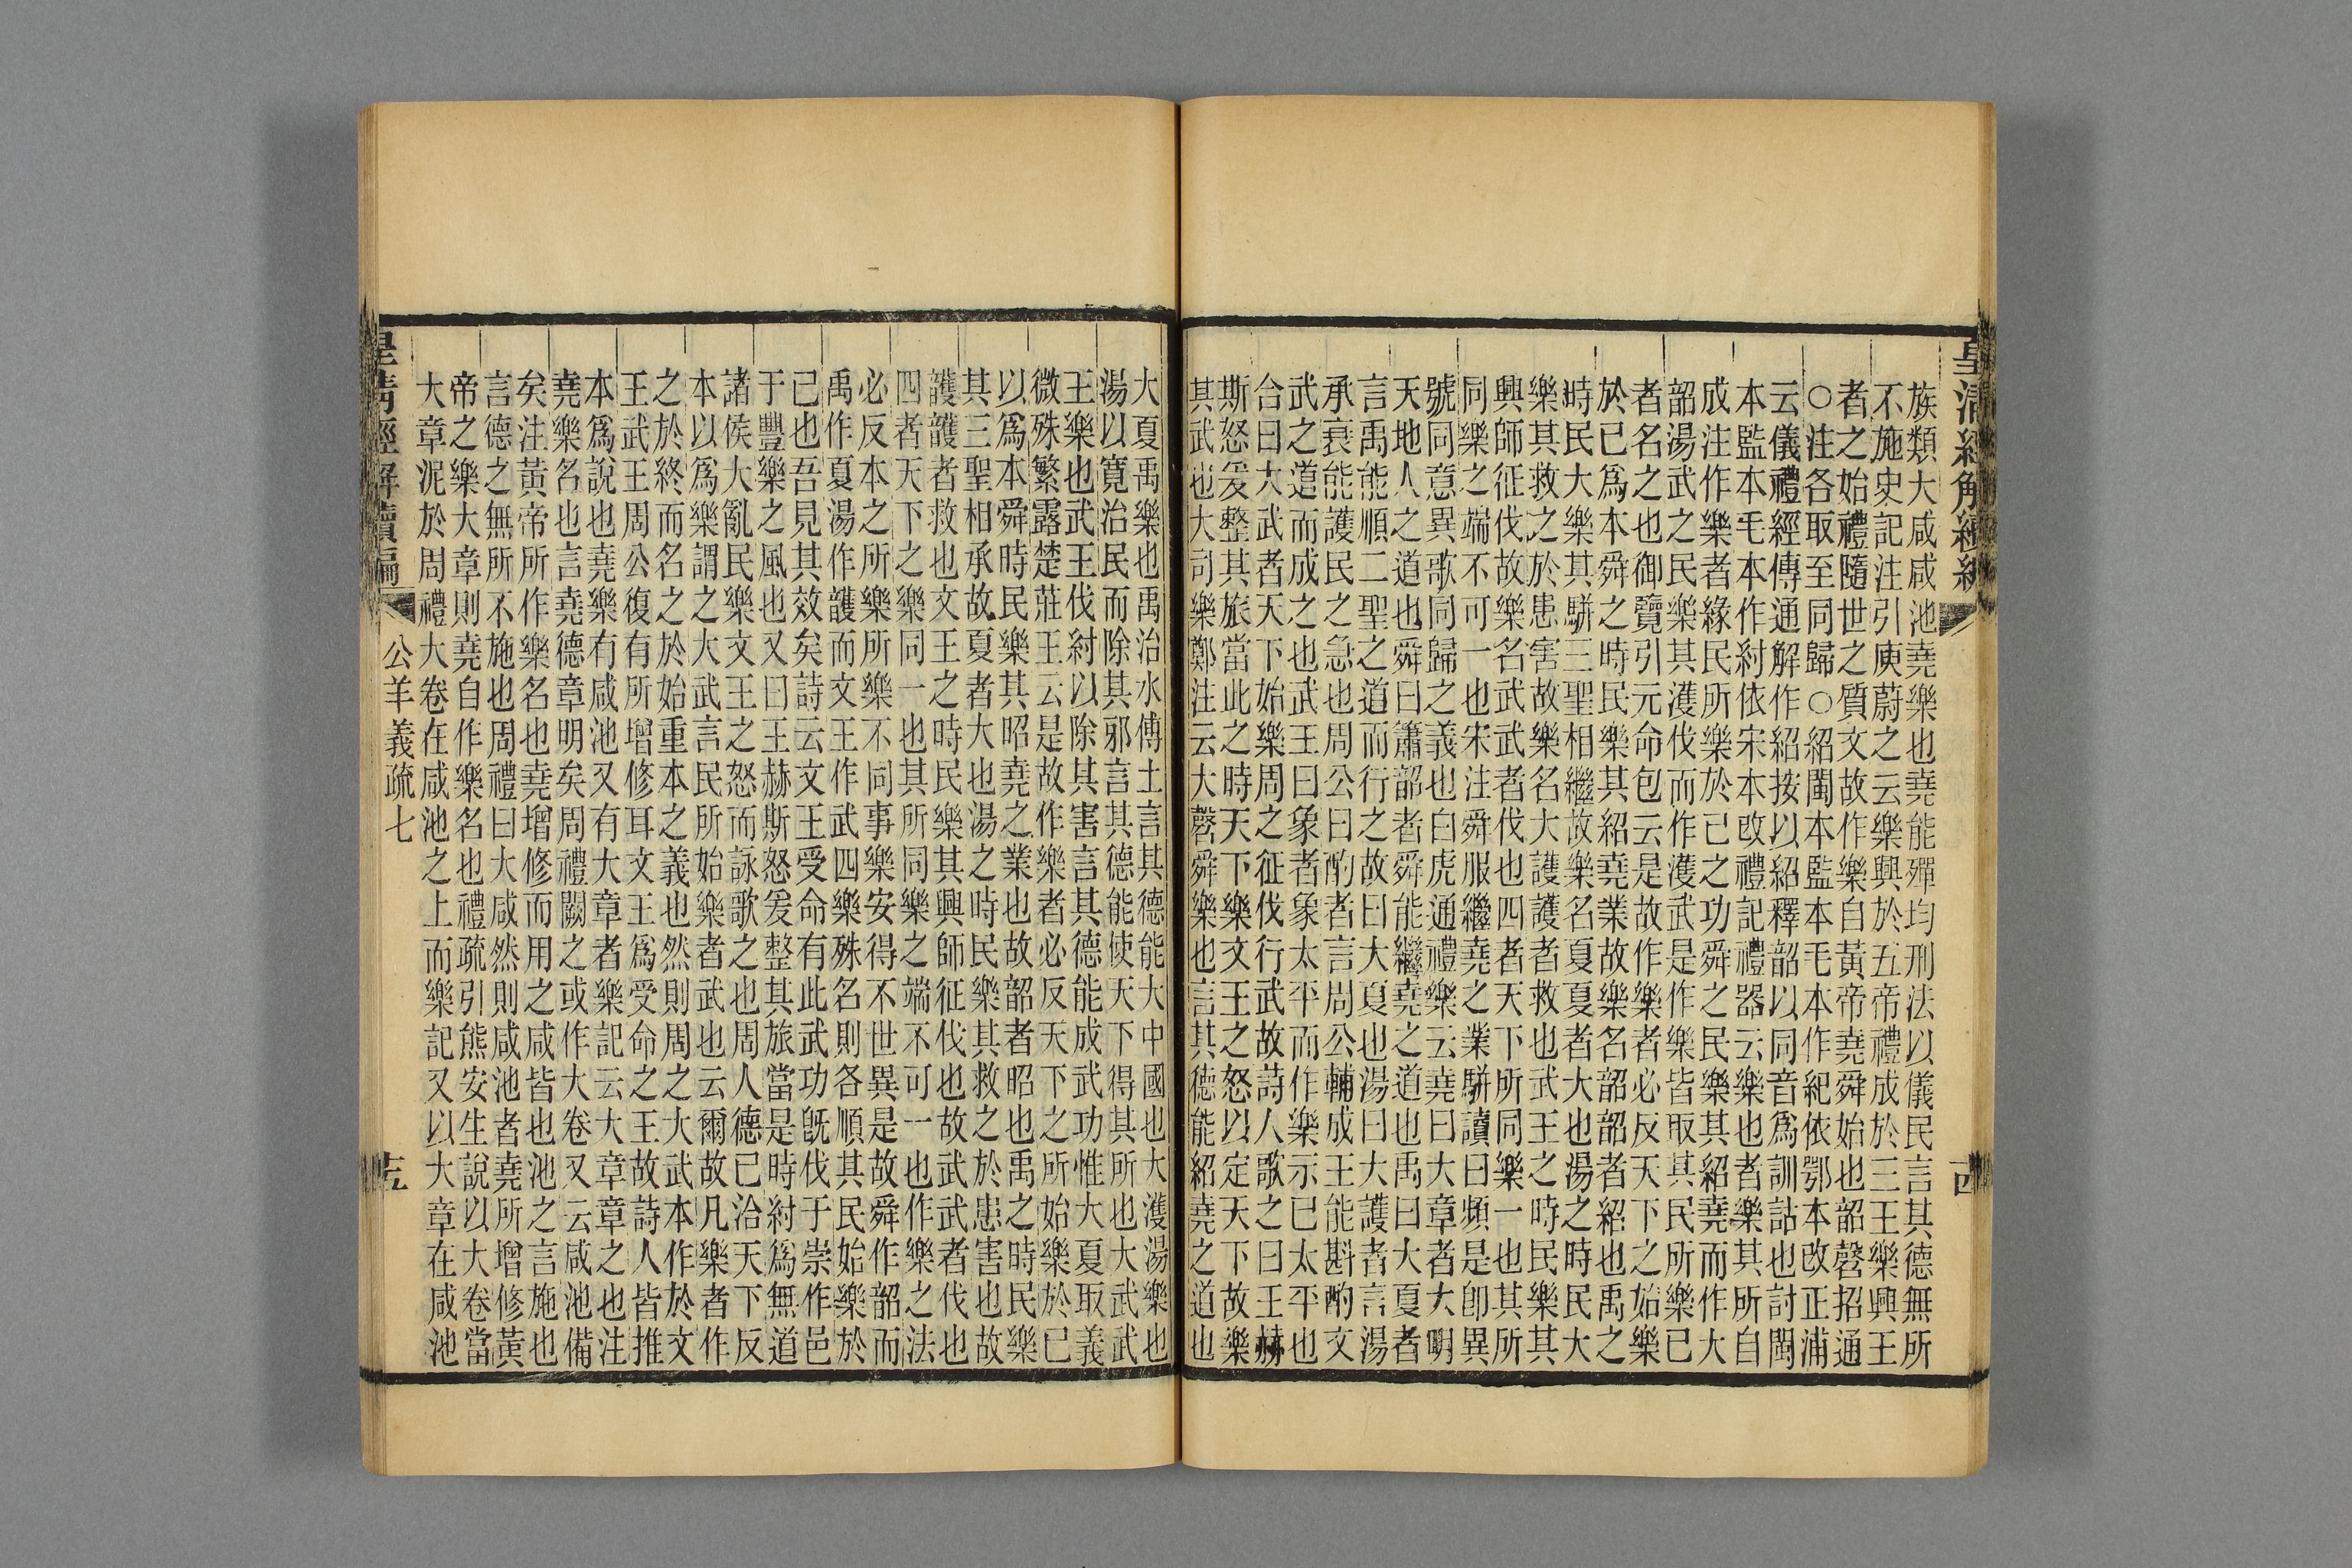 皇清經解續編
族類大咸咸池堯樂也堯能殫均刑法以儀民言其德無所
不施史記注引庾蔚之云樂興於五帝禮成於三王樂興王
者之始禮隨世之質文故作樂自黃帝堯舜始也韶磬招通
○注各取至同歸○紹閩本監本毛本作紀依鄂本改正浦
云儀禮經傳通解作紹按以紹釋韶以同音爲訓詁也討閩
本監本毛本作紂依宋本改禮記禮器云樂也者樂其所自
成注作樂者緣民所樂於已之功舜之民樂其紹堯而作大
韶湯武之民樂其濩伐而作濩武是作樂皆取其民所樂已
者名之也御覽引元命包云是故作樂者必反天下之始樂
於已爲本舜之時民樂其紹堯業故樂名韶韶者紹也禹之
時民大樂其駢三聖相繼故樂名夏夏者大也湯之時民大
樂其救之於患害故樂名大護護者救也武王之時民樂其
興師征伐故樂名武武者伐也四者天下所同樂一也其所
同樂之端不可一也宋注舜服繼堯之業駢讀曰頻是卽異
號同意異歌同歸之義也白虎通禮樂云堯曰大章者大明
天地人之道也舜曰簫韶者舜能繼堯之道也禹曰大夏者
言禹能順二聖之道而行之故曰大夏也湯曰大護者言湯
承衰能護民之急也周公曰酌者言周公輔成王能斟酌文
武之道而成之也武王曰象者象太平而作樂示已太平也
合曰大武者天下始樂周之征伐行武故詩人歌之曰王赫
斯怒爰整其旅當此之時天下樂文王之怒以定天下故樂
其武也大司樂鄭注云大磬舜樂也言其德能紹堯之道也
大夏禹樂也禹治水傅土言其德能大中國也大濩湯樂也
湯以寬治民而除其邪言其德能使天下得其所也大武武
王樂也武王伐紂以除其害言其德能成武功惟大夏取義
微殊繁露楚莊王云是故作樂者必反天下之所始樂於已
以爲本舜時民樂其昭堯之業也故韶韶者昭也禹之時民樂
其三聖相承故夏夏者大也湯之時民樂其救之於患害也故
護護者救也文王之時民樂其興師征伐也故武武者伐也
四者天下之樂同一也其所同樂之端不可一也作樂之法
必反本之所樂所樂不同事樂安得不世異是故舜作韶而
禹作夏湯作護而文王作武四樂殊名則各順其民始樂於
已也吾見其效矣詩云文王受命有此武功旣伐于崇作邑
于豐樂之風也又曰王赫斯怒爰整其旅當是時紂爲無道
諸侯大亂民樂文王之怒而詠歌之也周人德已洽天下反
本以爲樂謂之大武言民所始樂者武也云爾故凡樂者作
之於終而名之於始重本之義也然則周之大武本作於文
王武王周公復有所增修耳文王爲受命之王故詩人皆推
本爲說也堯樂有咸池又有大章者樂記云大章章之也注
堯樂名也言堯德章明矣周禮闕之或作大卷又云咸池備
矣注黃帝所作樂名也堯增修而用之咸皆也池之言施也
言德之無所不施也周禮曰大咸然則咸池者堯所增修黃
帝之樂大章則堯自作樂名也禮疏引熊安生說以大卷當
大章泥於周禮大卷在咸池之上而樂記又以大章在咸池
皇清經解續編
公羊義疏七